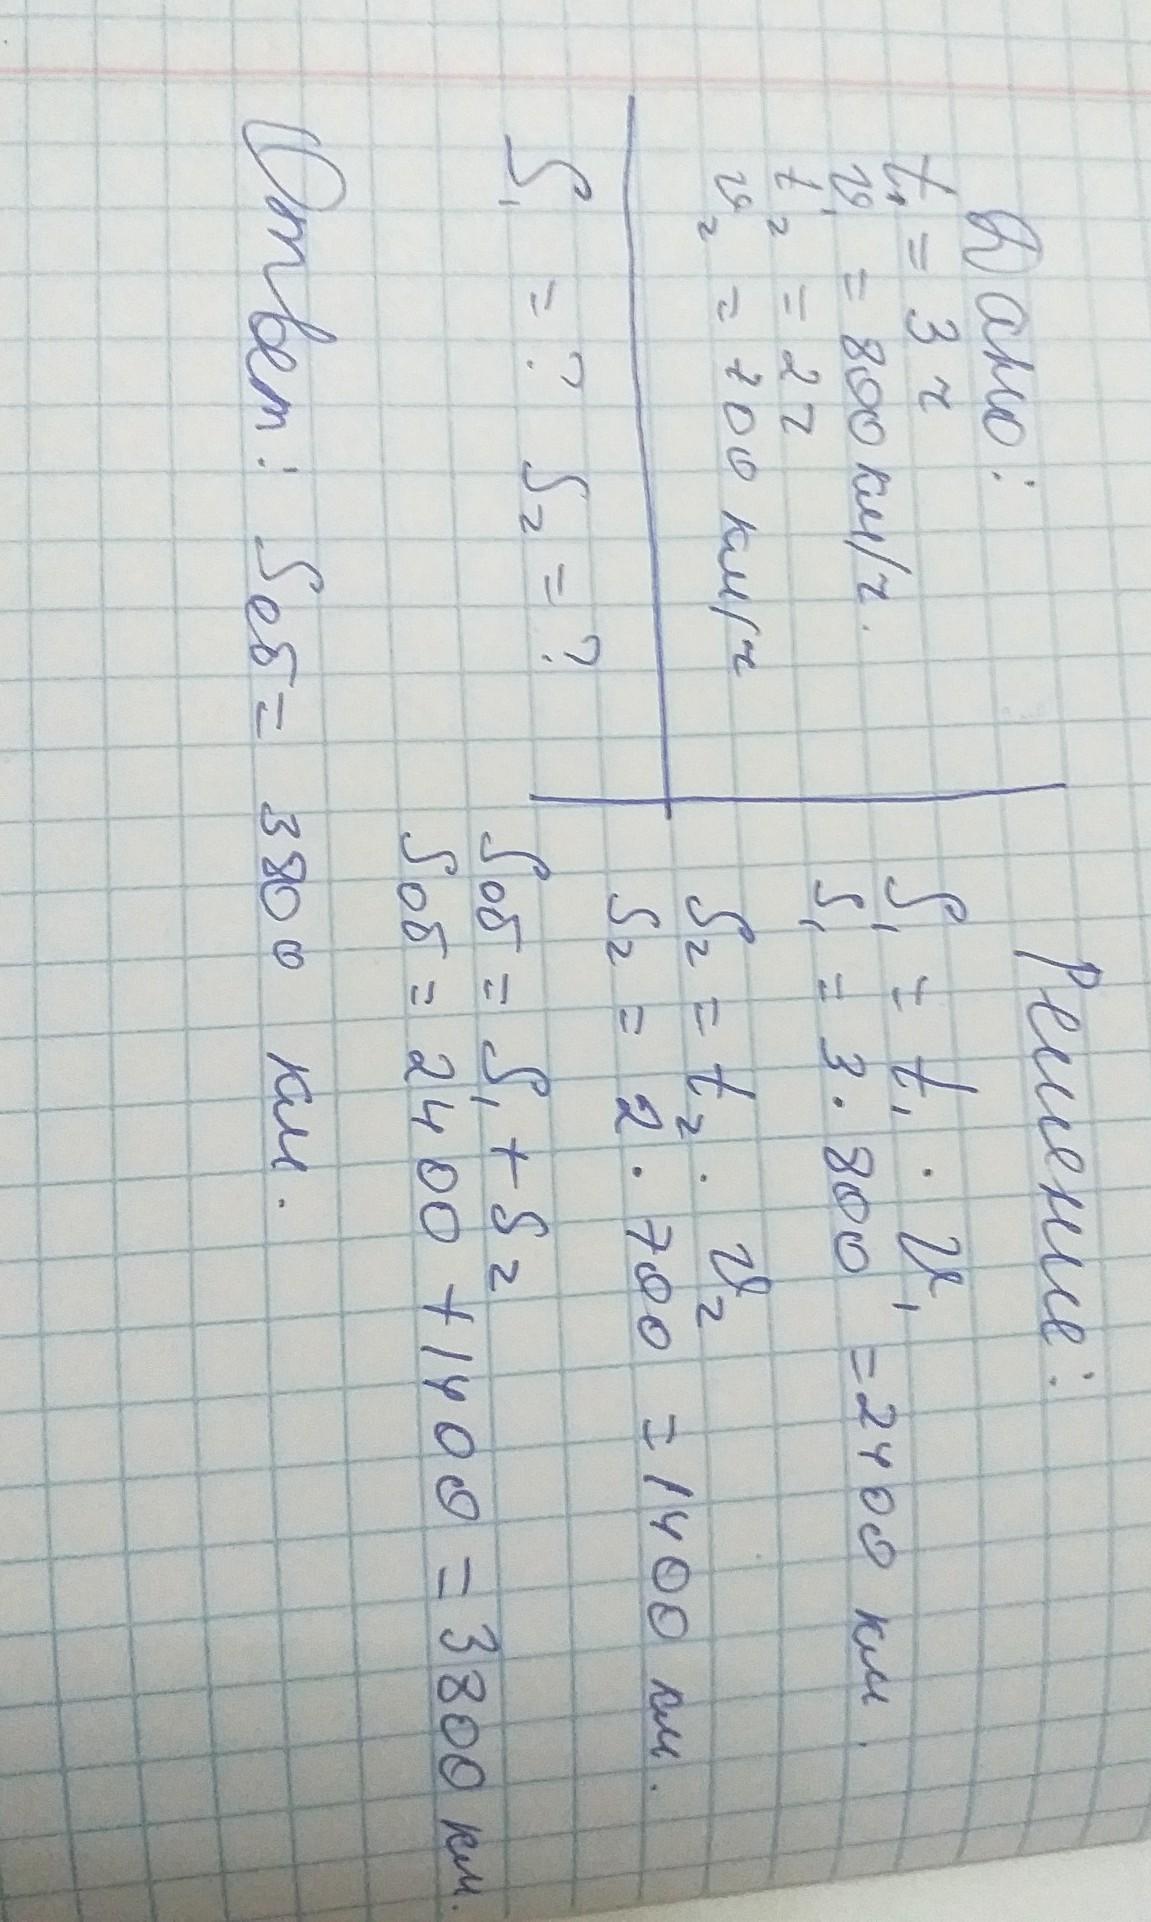 Дано:
t₁ = 3 ч
υ₁ = 800 км/ч.
t₂ = 2ч
υ₂ = 700 км/ч
S₁ = ? S₂ = ?
Решение:
S₁ = t₁ · υ₁
S₁ = 3 · 800 = 2400 км.
S₂ = t₂ · υ₂
S₂ = 2 · 700 = 1400 км.
Sоб = S₁ + S₂
Sоб = 2400 + 1400 = 3800 км.
Ответ: Sоб = 3800 км.